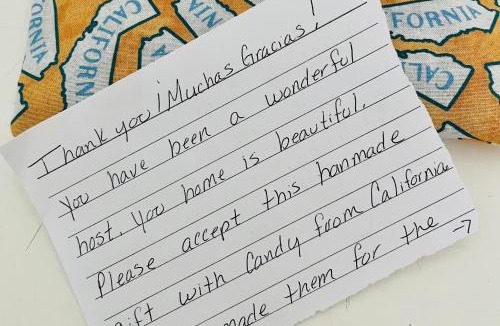 Thank you ¡Muchas Gracias!
You have been a wonderful
host. You home is beautiful.
Please accept this hanmade
gift with Candy from California
made them for the →
CALIFORNIA
FORNIA
CAL